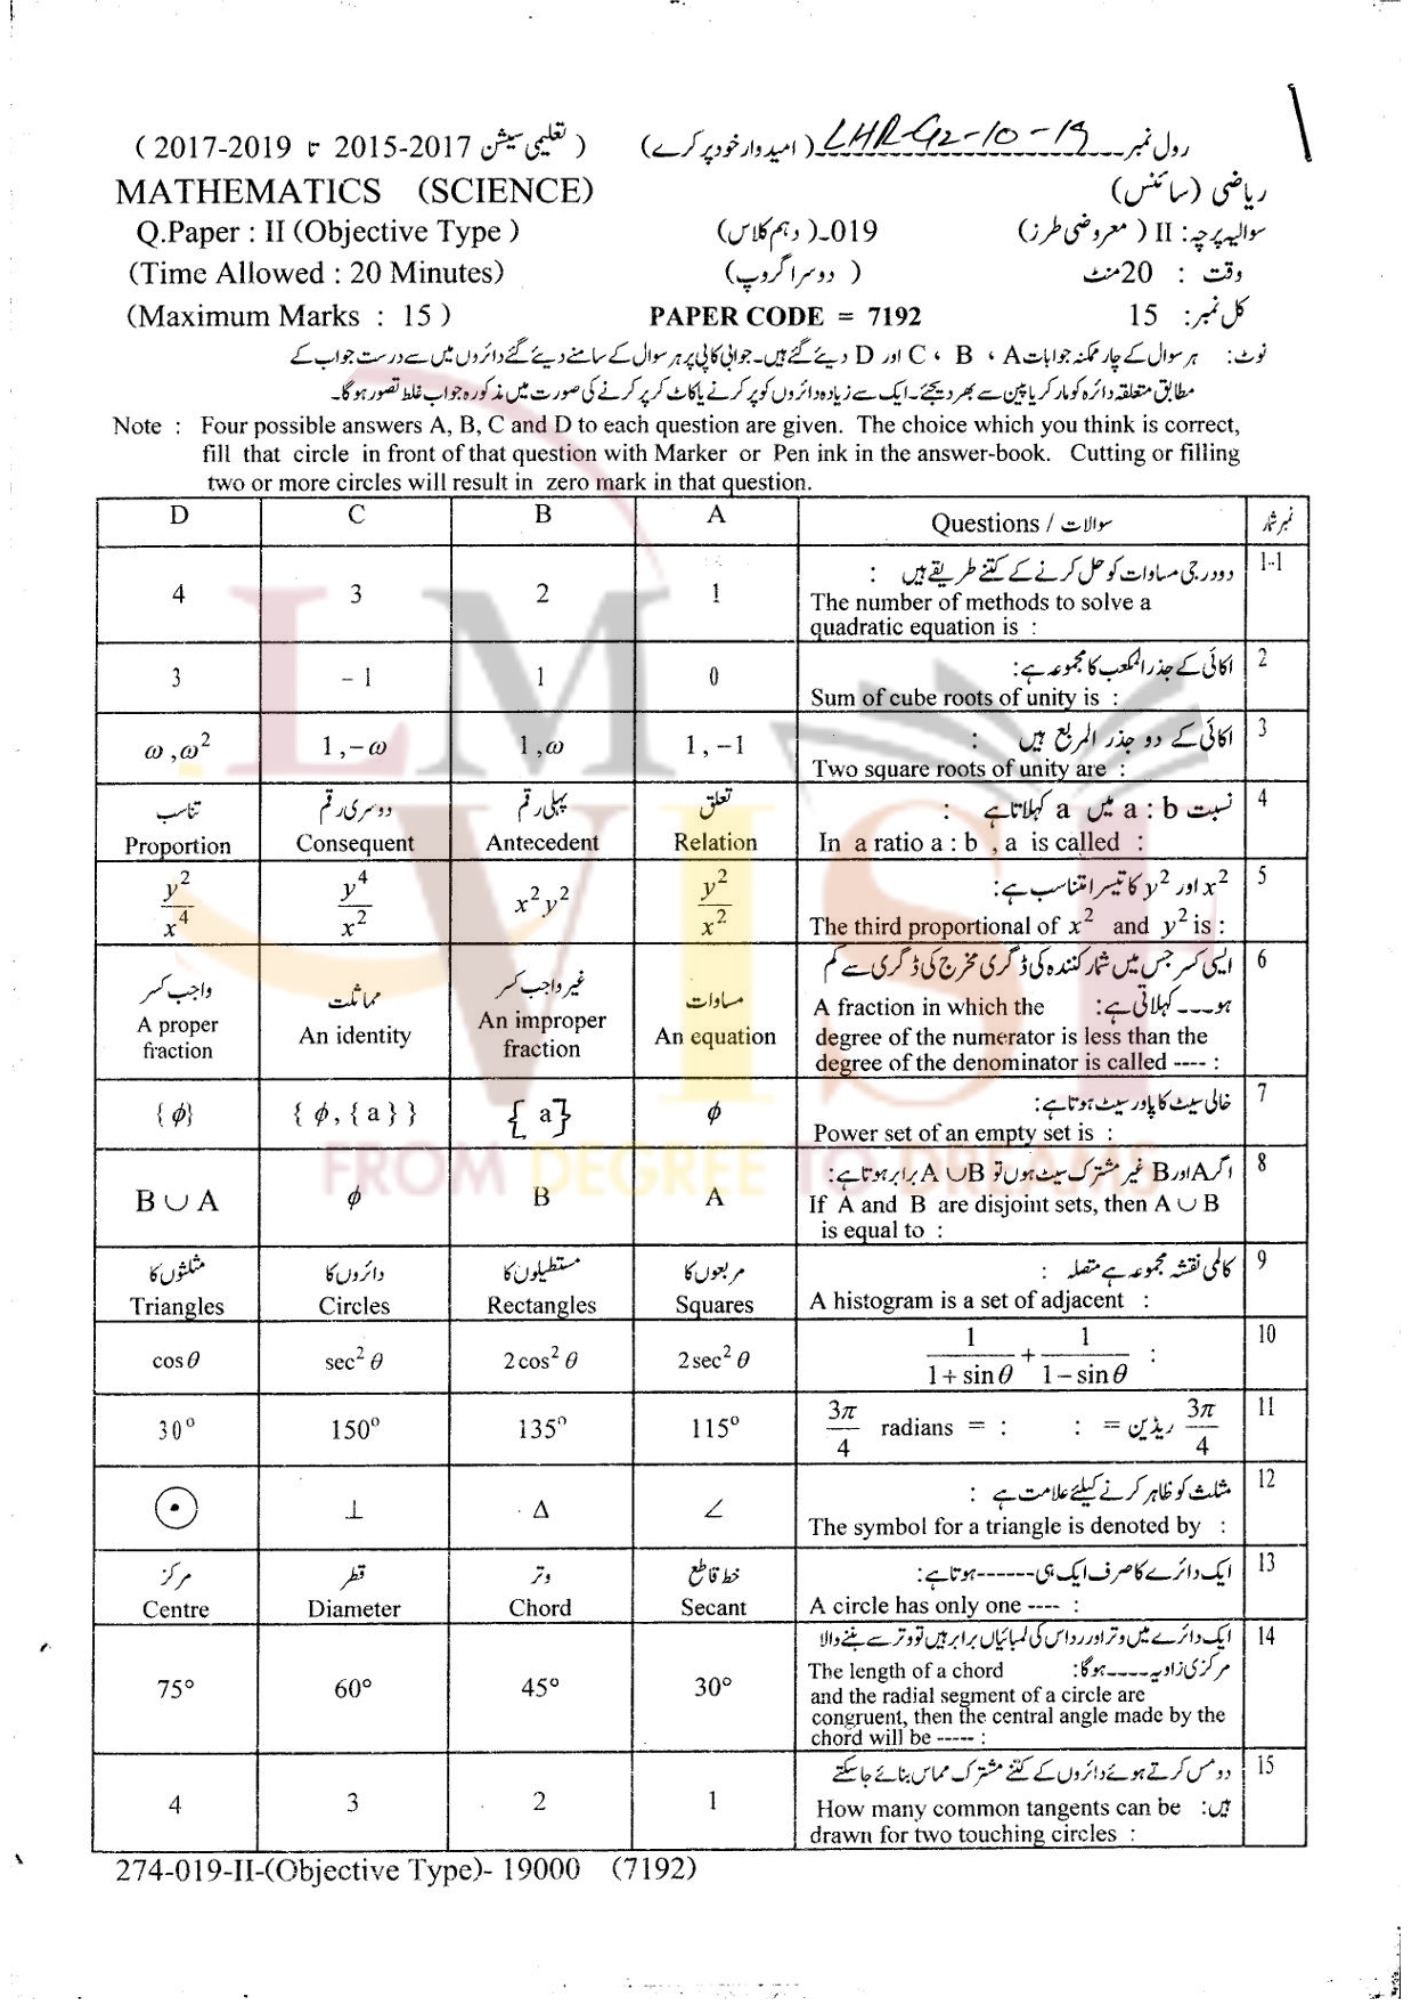 رول نمبر LHR-G2-10-19 (امیدوار خود پر کرے) (تعلیمی سیشن 2015-2017 تا 2017-2019)
ریاضی (سائنس) MATHEMATICS (SCIENCE)
سوالیہ پرچہ: II (معروضی طرز) 019۔(دہم کلاس) Q.Paper : II (Objective Type )
وقت : 20 منٹ (دوسرا گروپ) (Time Allowed : 20 Minutes)
کل نمبر: 15 PAPER CODE = 7192 (Maximum Marks : 15 )
نوٹ: ہر سوال کے چار ممکنہ جوابات A ، B ، C اور D دیئے گئے ہیں۔ جوابی کاپی پر ہر سوال کے سامنے دیئے گئے دائروں میں سے درست جواب کے
مطابق متعلقہ دائرہ کو مارکر یا پین سے بھر دیجئے۔ ایک سے زیادہ دائروں کو پر کرنے یا کاٹ کر پر کرنے کی صورت میں مذکورہ جواب غلط تصور ہوگا۔
Note : Four possible answers A, B, C and D to each question are given. The choice which you think is correct,
fill that circle in front of that question with Marker or Pen ink in the answer-book. Cutting or filling
two or more circles will result in zero mark in that question.
D C B A Questions / سوالات نمبر شمار
1-1 دو درجی مساوات کو حل کرنے کے کتنے طریقے ہیں :
The number of methods to solve a
quadratic equation is :
4 3 2 1
2 اکائی کے جذر المکعب کا مجموعہ ہے:
Sum of cube roots of unity is :
3 – 1 1 0
3 اکائی کے دو جذر المربع ہیں :
Two square roots of unity are :
ω ,ω² 1 ,−ω 1 ,ω 1 , −1
4 نسبت a : b میں a کہلاتا ہے :
In a ratio a : b , a is called :
تناسب دوسری رقم پہلی رقم تعلق
Proportion Consequent Antecedent Relation
5 x² اور y² کا تیسرا متناسب ہے:
The third proportional of x² and y² is :
y²/x⁴ y⁴/x² x²y² y²/x²
6 ایسی کسر جس میں شمار کنندہ کی ڈگری مخرج کی ڈگری سے کم
ہو۔۔۔۔ کہلاتی ہے: A fraction in which the
degree of the numerator is less than the
degree of the denominator is called ---- :
واجب کسر مماثلت غیر واجب کسر مساوات
A proper fraction An identity An improper fraction An equation
7 خالی سیٹ کا پاور سیٹ ہوتا ہے:
Power set of an empty set is :
{ ϕ} { ϕ , { a } } { a } ϕ
8 اگر A اور B غیر مشترک سیٹ ہوں تو A ∪ B برابر ہوتا ہے:
If A and B are disjoint sets, then A ∪ B
is equal to :
B ∪ A ϕ B A
9 کالمی نقشہ مجموعہ ہے متصلہ :
A histogram is a set of adjacent :
مثلثوں کا دائروں کا مستطیلوں کا مربعوں کا
Triangles Circles Rectangles Squares
10 1/(1 + sin θ) + 1/(1 − sin θ) :
cos θ sec² θ 2 cos² θ 2 sec² θ
11 3π/4 ریڈین = : 3π/4 radians = :
30° 150° 135° 115°
12 مثلث کو ظاہر کرنے کیلئے علامت ہے :
The symbol for a triangle is denoted by :
⊙ ⊥ Δ ∠
13 ایک دائرے کا صرف ایک ہی ------ ہوتا ہے:
A circle has only one ---- :
مرکز قطر وتر خط قاطع
Centre Diameter Chord Secant
14 ایک دائرے میں وتر اور رداس کی لمبائیاں برابر ہیں تو وتر سے بننے والا
مرکزی زاویہ ۔۔۔۔ ہوگا: The length of a chord
and the radial segment of a circle are
congruent, then the central angle made by the
chord will be ----- :
75° 60° 45° 30°
15 دو مس کرتے ہوئے دائروں کے کتنے مشترک مماس بنائے جا سکتے
ہیں: How many common tangents can be
drawn for two touching circles :
4 3 2 1
274-019-II-(Objective Type)- 19000 (7192)
LM
VISE
FROM DEGREE TO DREAMS